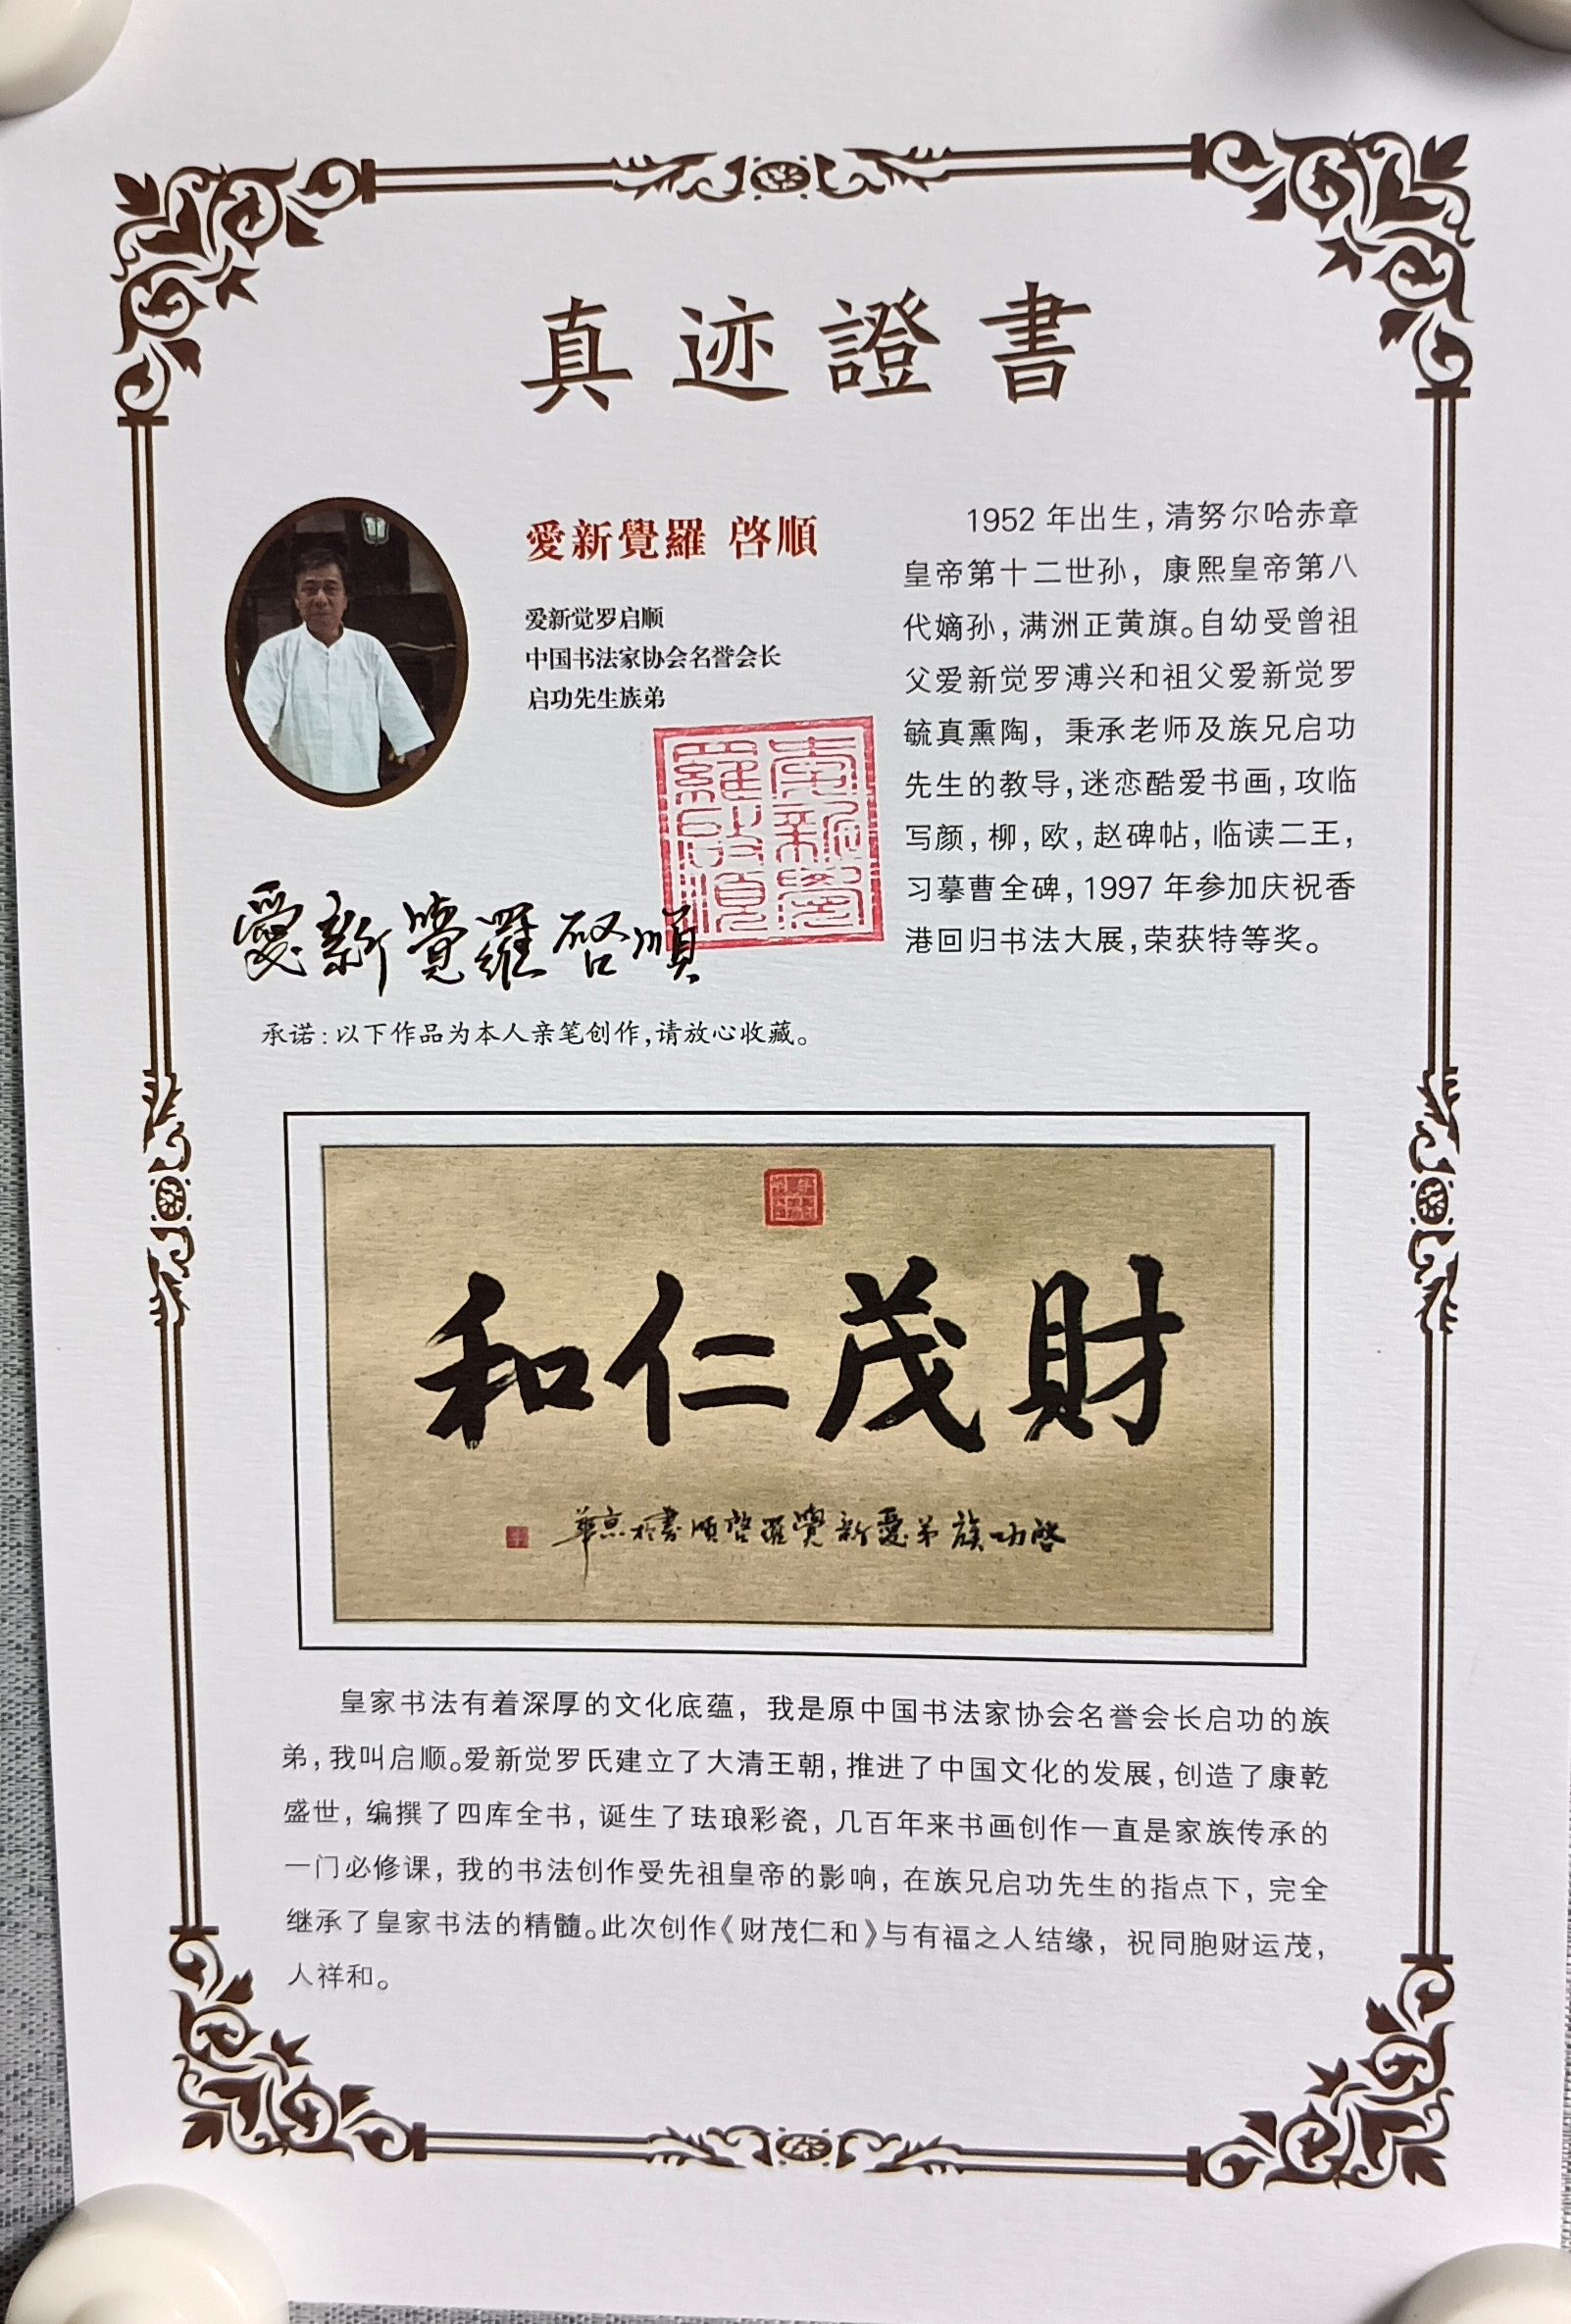 真迹證書
愛新覺羅 啓順
爱新觉罗启顺
中国书法家协会名誉会长
启功先生族弟
愛新覺羅啓順
愛新覺羅啓順
承诺：以下作品为本人亲笔创作，请放心收藏。
1952 年出生，清努尔哈赤章
皇帝第十二世孙，康熙皇帝第八
代嫡孙，满洲正黄旗。自幼受曾祖
父爱新觉罗溥兴和祖父爱新觉罗
毓真熏陶，秉承老师及族兄启功
先生的教导，迷恋酷爱书画，攻临
写颜，柳，欧，赵碑帖，临读二王，
习摹曹全碑，1997 年参加庆祝香
港回归书法大展，荣获特等奖。
財茂仁和
啓功族弟愛新覺羅啓順書於京華
皇家书法有着深厚的文化底蕴，我是原中国书法家协会名誉会长启功的族
弟，我叫启顺。爱新觉罗氏建立了大清王朝，推进了中国文化的发展，创造了康乾
盛世，编撰了四库全书，诞生了珐琅彩瓷，几百年来书画创作一直是家族传承的
一门必修课，我的书法创作受先祖皇帝的影响，在族兄启功先生的指点下，完全
继承了皇家书法的精髓。此次创作《财茂仁和》与有福之人结缘，祝同胞财运茂，
人祥和。